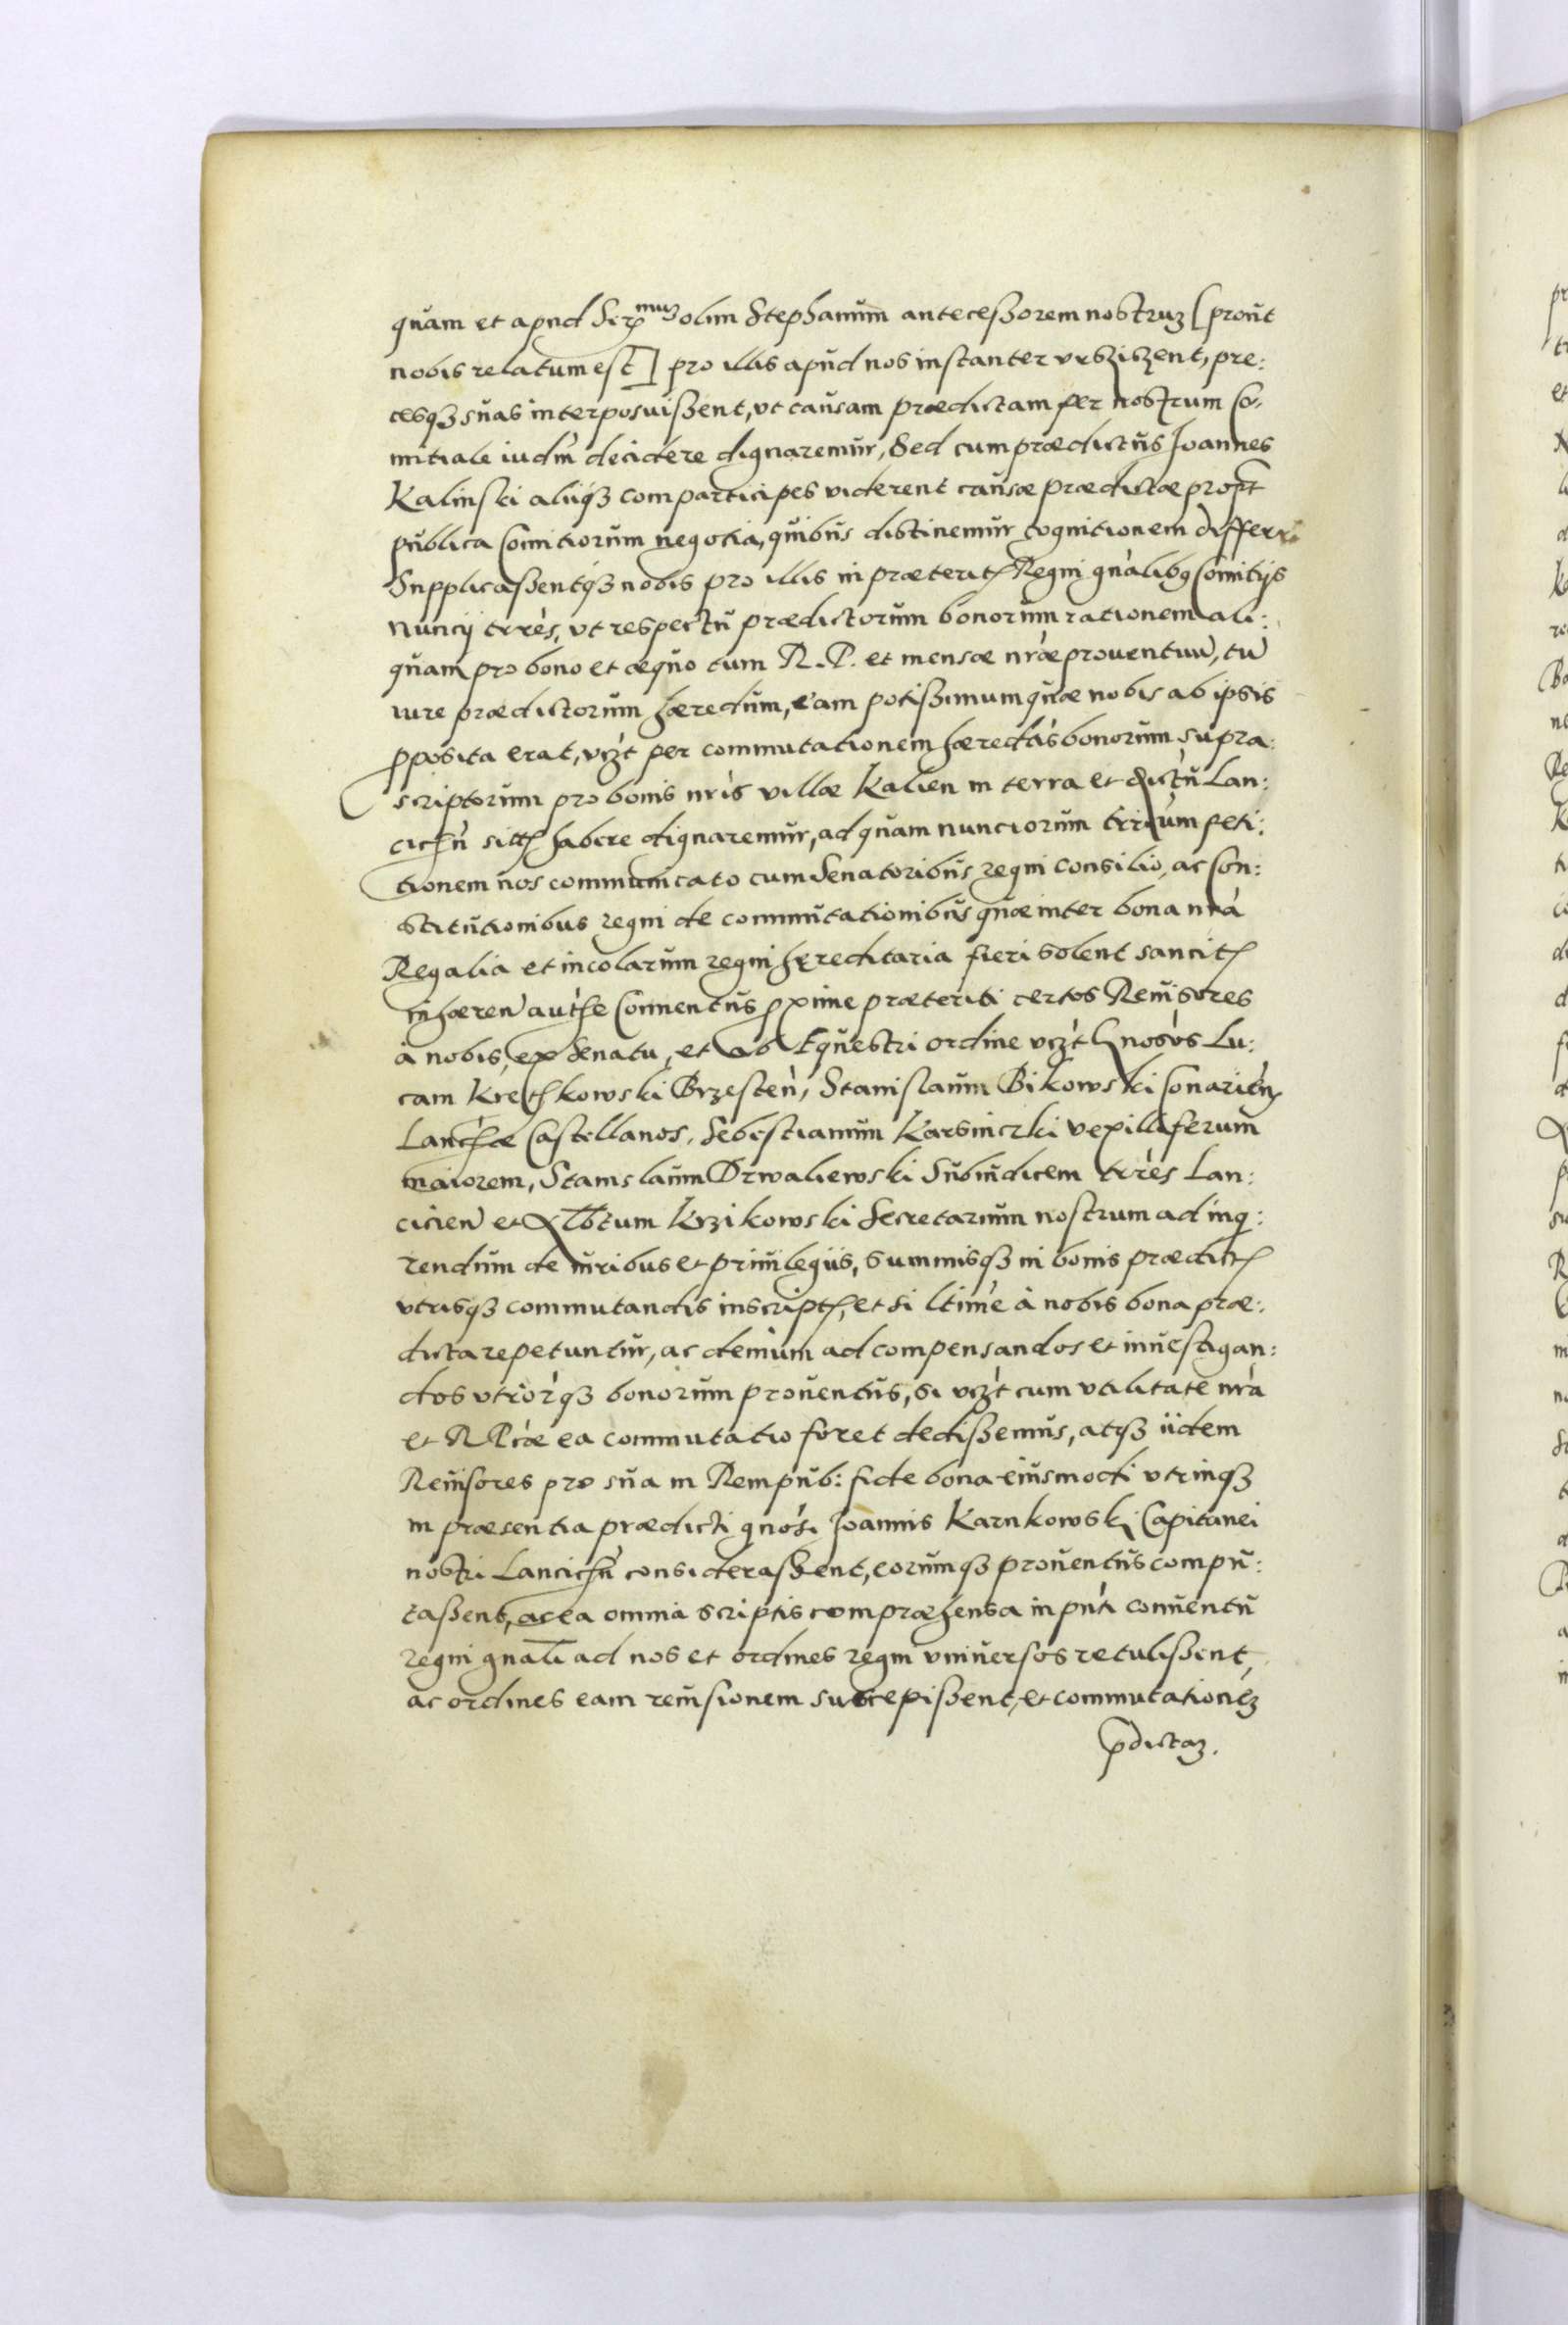 quam et apud Ser^muz olim Stephanum antecessorem nostruz [prout
nobis relatum est] pro illis apud nos instanter ursissent, pre:
cesqz suas interposuissent, ut causam prædictam per nostrum Co:
mitiale iudm decidere dignaremur, Sed cum prædictus Joannes
Kalinski aliiqz comparticipes viderent causæ prædictæ propt
publica Comitiorum negotia, quibus distinemur cognitionem differri
Supplicassentqz nobis pro illis in præterit Regni gnalibq Comitijs
nuncij trres, ut respectu prædictorum bonorum rationem ali:
quam pro bono et æquo cum R. P. et mensæ nræ proventuu, tu
iure prædictorum hæredum, eam potissimum quæ nobis ab ipsis
pposita erat, vizt per commutationem hæredtas bonorum supra:
scriptorum pro bonis nris villæ Kalien in terra et dictu Lan:
cicn sitt habere dignaremur, ad quam nunciorum trrium peti:
tionem nos communicato cum Senatoribus regni consilio, ac Con:
stitutionibus regni de commutationibus quæ inter bona nra
Regalia et incolarum regni hereditaria fieri solent sancit
inhæren authe Conventus pxime præteriti certos Revisores
à nobis, ex Senatu, et ab Equestri ordine vizt Gnosos Lu:
cam Kretkowski Brzesten, Stanislaum Bikowski Conarien
Lanchæ Castellanos, Sebestianum Karsniczki vexilliferum
maiorem, Stanislaum Drwaliewski Subiudicem trres Lan:
cicien et Albtum Krzikowski Secretarium nostrum ad inq:
rendum de iuribus et privilegiis, summisqz in bonis prædict
utrisqz commutandis inscript, et si ltime à nobis bona præ:
dicta repetuntur, ac demum ad compensandos et investigan:
dos utriorqz bonorum proventus, si vizt cum utilitate nra
et R Pcæ ea commutatio foret dedissemus, atqz iidem
Revisores pro sua in Rempub: fide bona eiusmodi utrinqz
in præsentia prædicti gnosi Joannis Karnkowski Capitanei
nostri Lancicn considerassent, eorumqz proventus compu:
tassent, ac ea omnia scriptis compræhensa in pnti conventu
regni gnali ad nos et ordines regni universos retulissent,
ac ordines eam revisionem suscepissent, et commutationez
pdictaz.